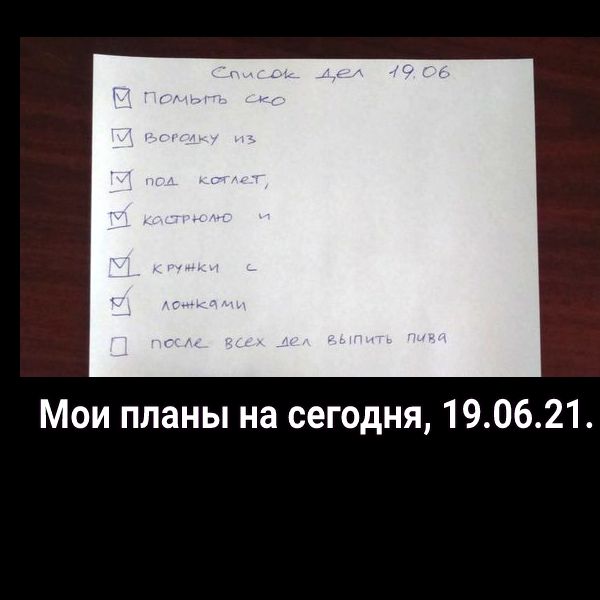 Список дел 19.06
Помыть ско
вородку из
под котлет,
кастрюлю и
кружки с
ложками
после всех дел выпить пива
Мои планы на сегодня, 19.06.21.